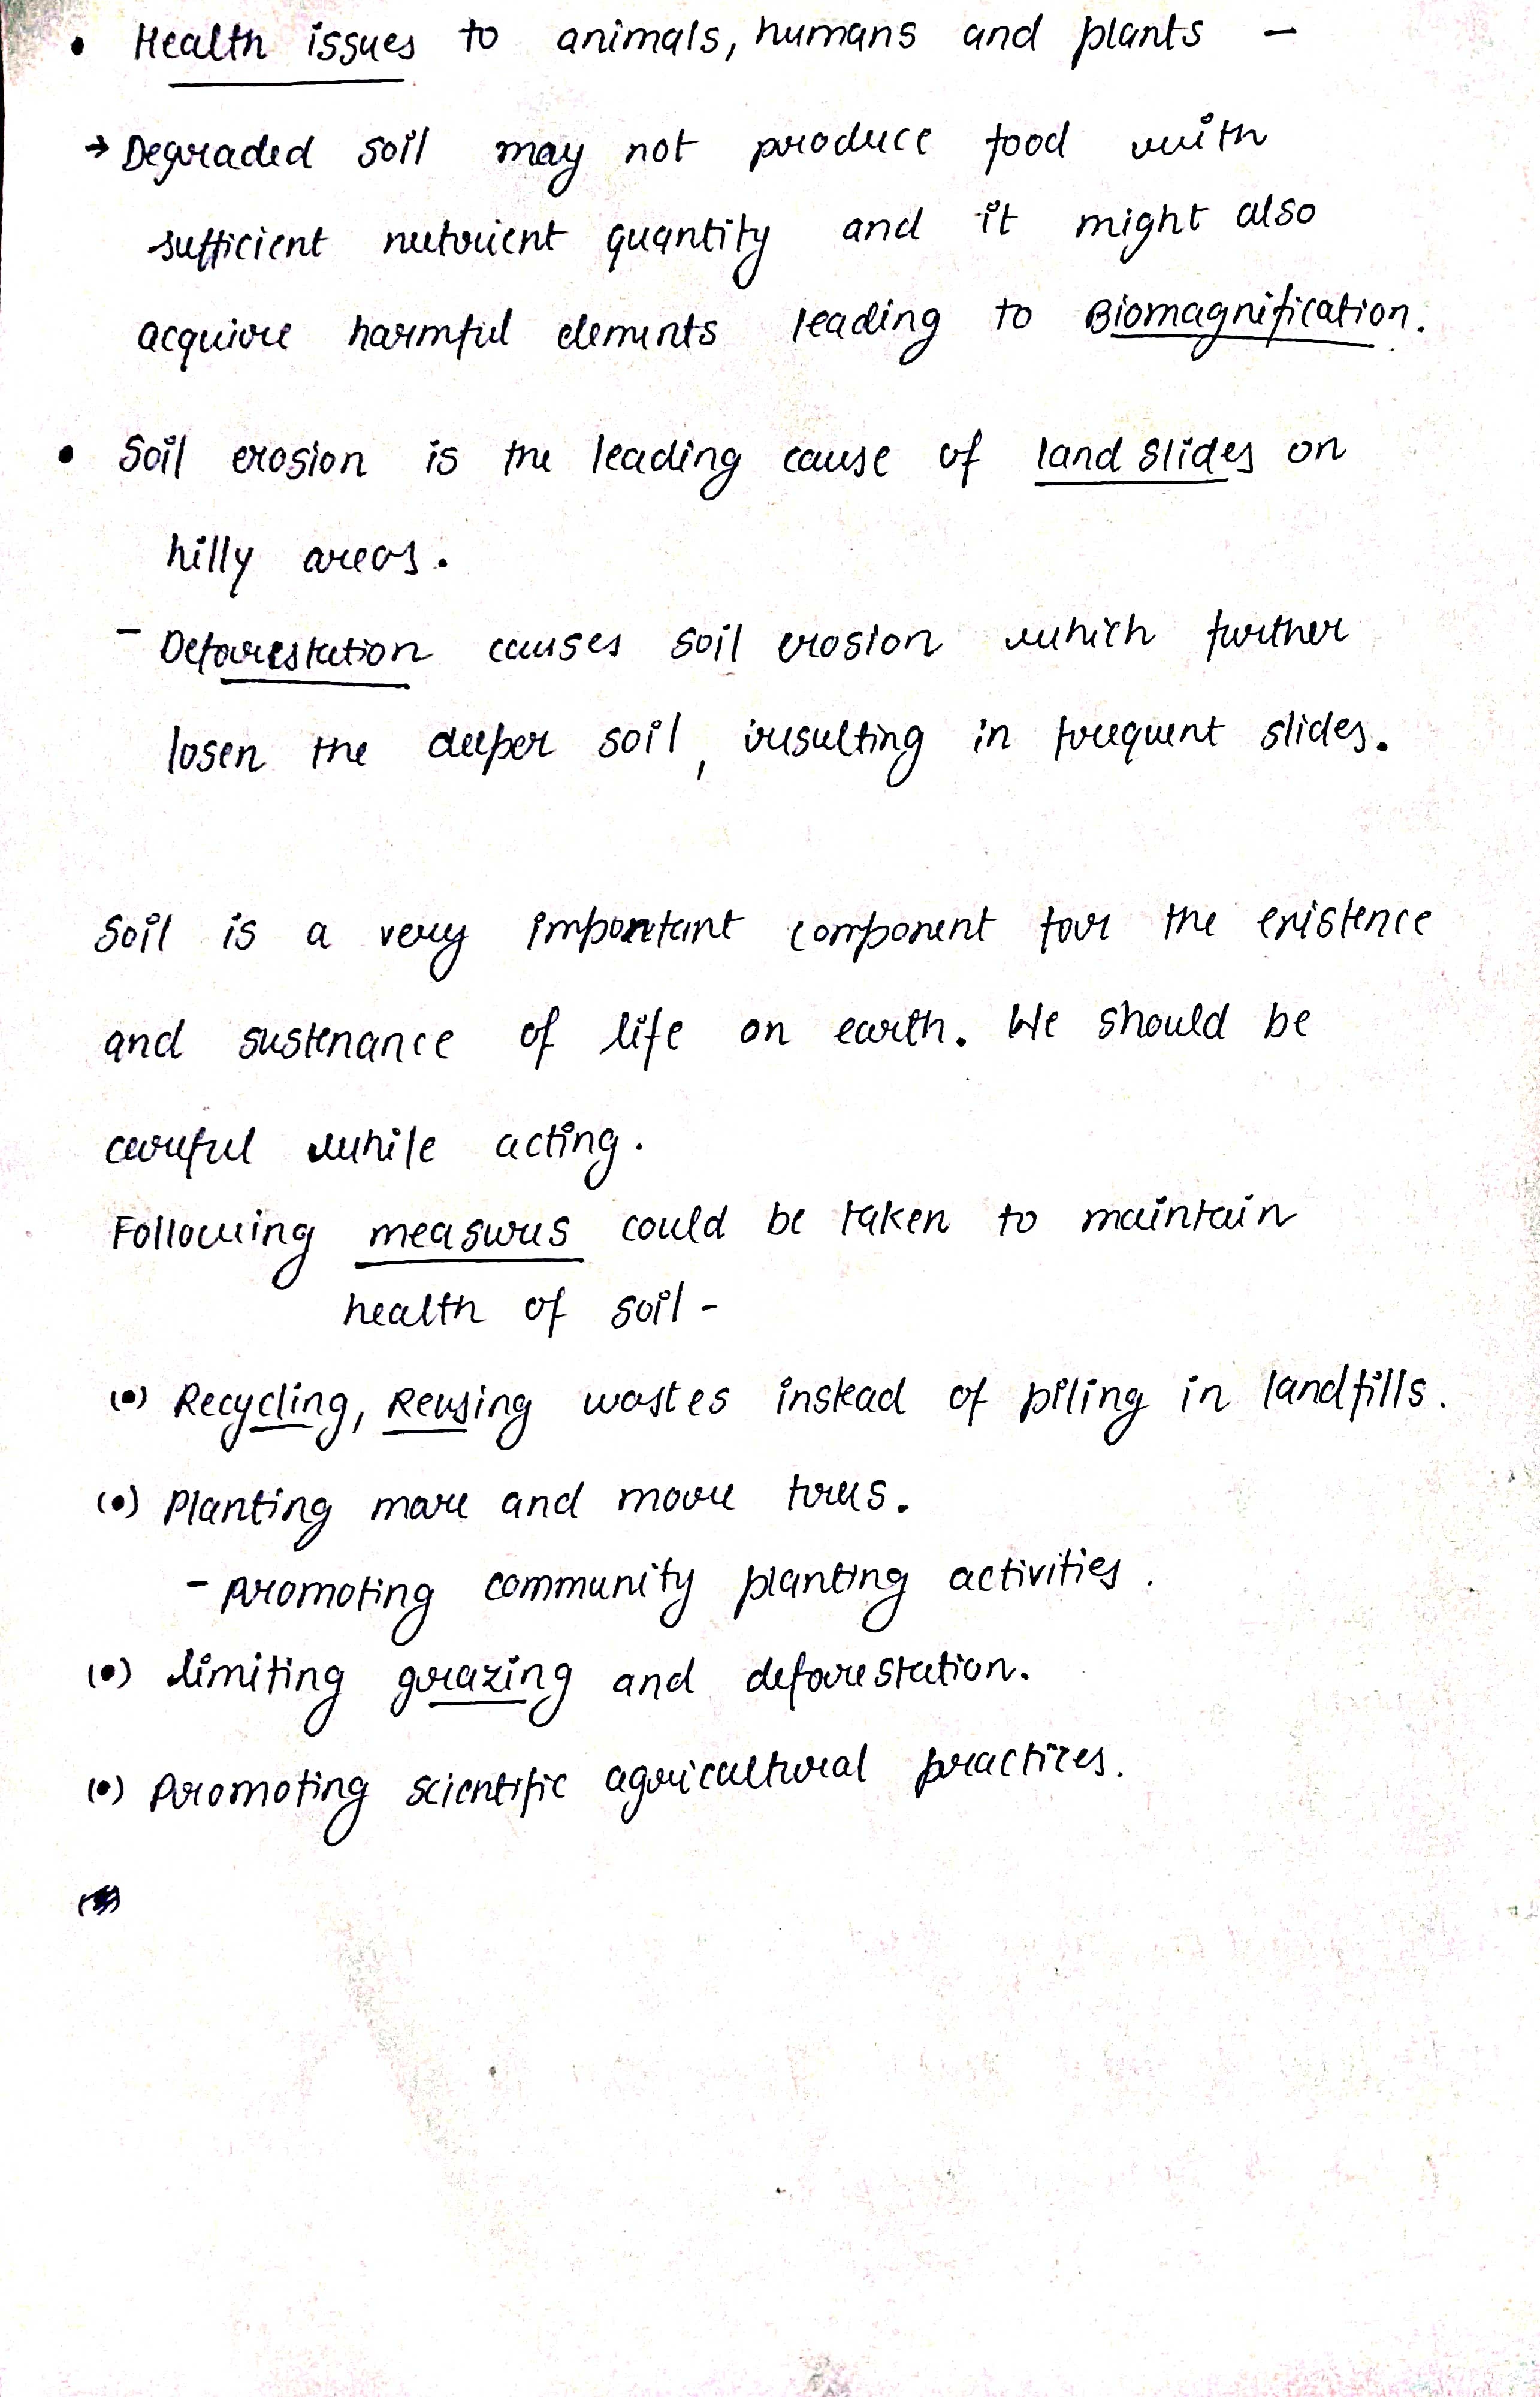 • Health issues to animals, humans and plants –
→ Degraded soil may not produce food with
sufficient nutrient quantity and it might also
acquire harmful elements leading to Biomagnification.
• Soil erosion is the leading cause of land slides on
hilly areas.
– Deforestation causes soil erosion which further
losen the deeper soil, resulting in frequent slides.
Soil is a very important component for the existence
and sustenance of life on earth. We should be
careful while acting.
Following measures could be taken to maintain
health of soil -
(•) Recycling, Reusing wastes instead of piling in landfills.
(•) Planting more and more trees.
– promoting community planting activities.
(•) limiting grazing and deforestation.
(•) Promoting scientific agricultural practices.